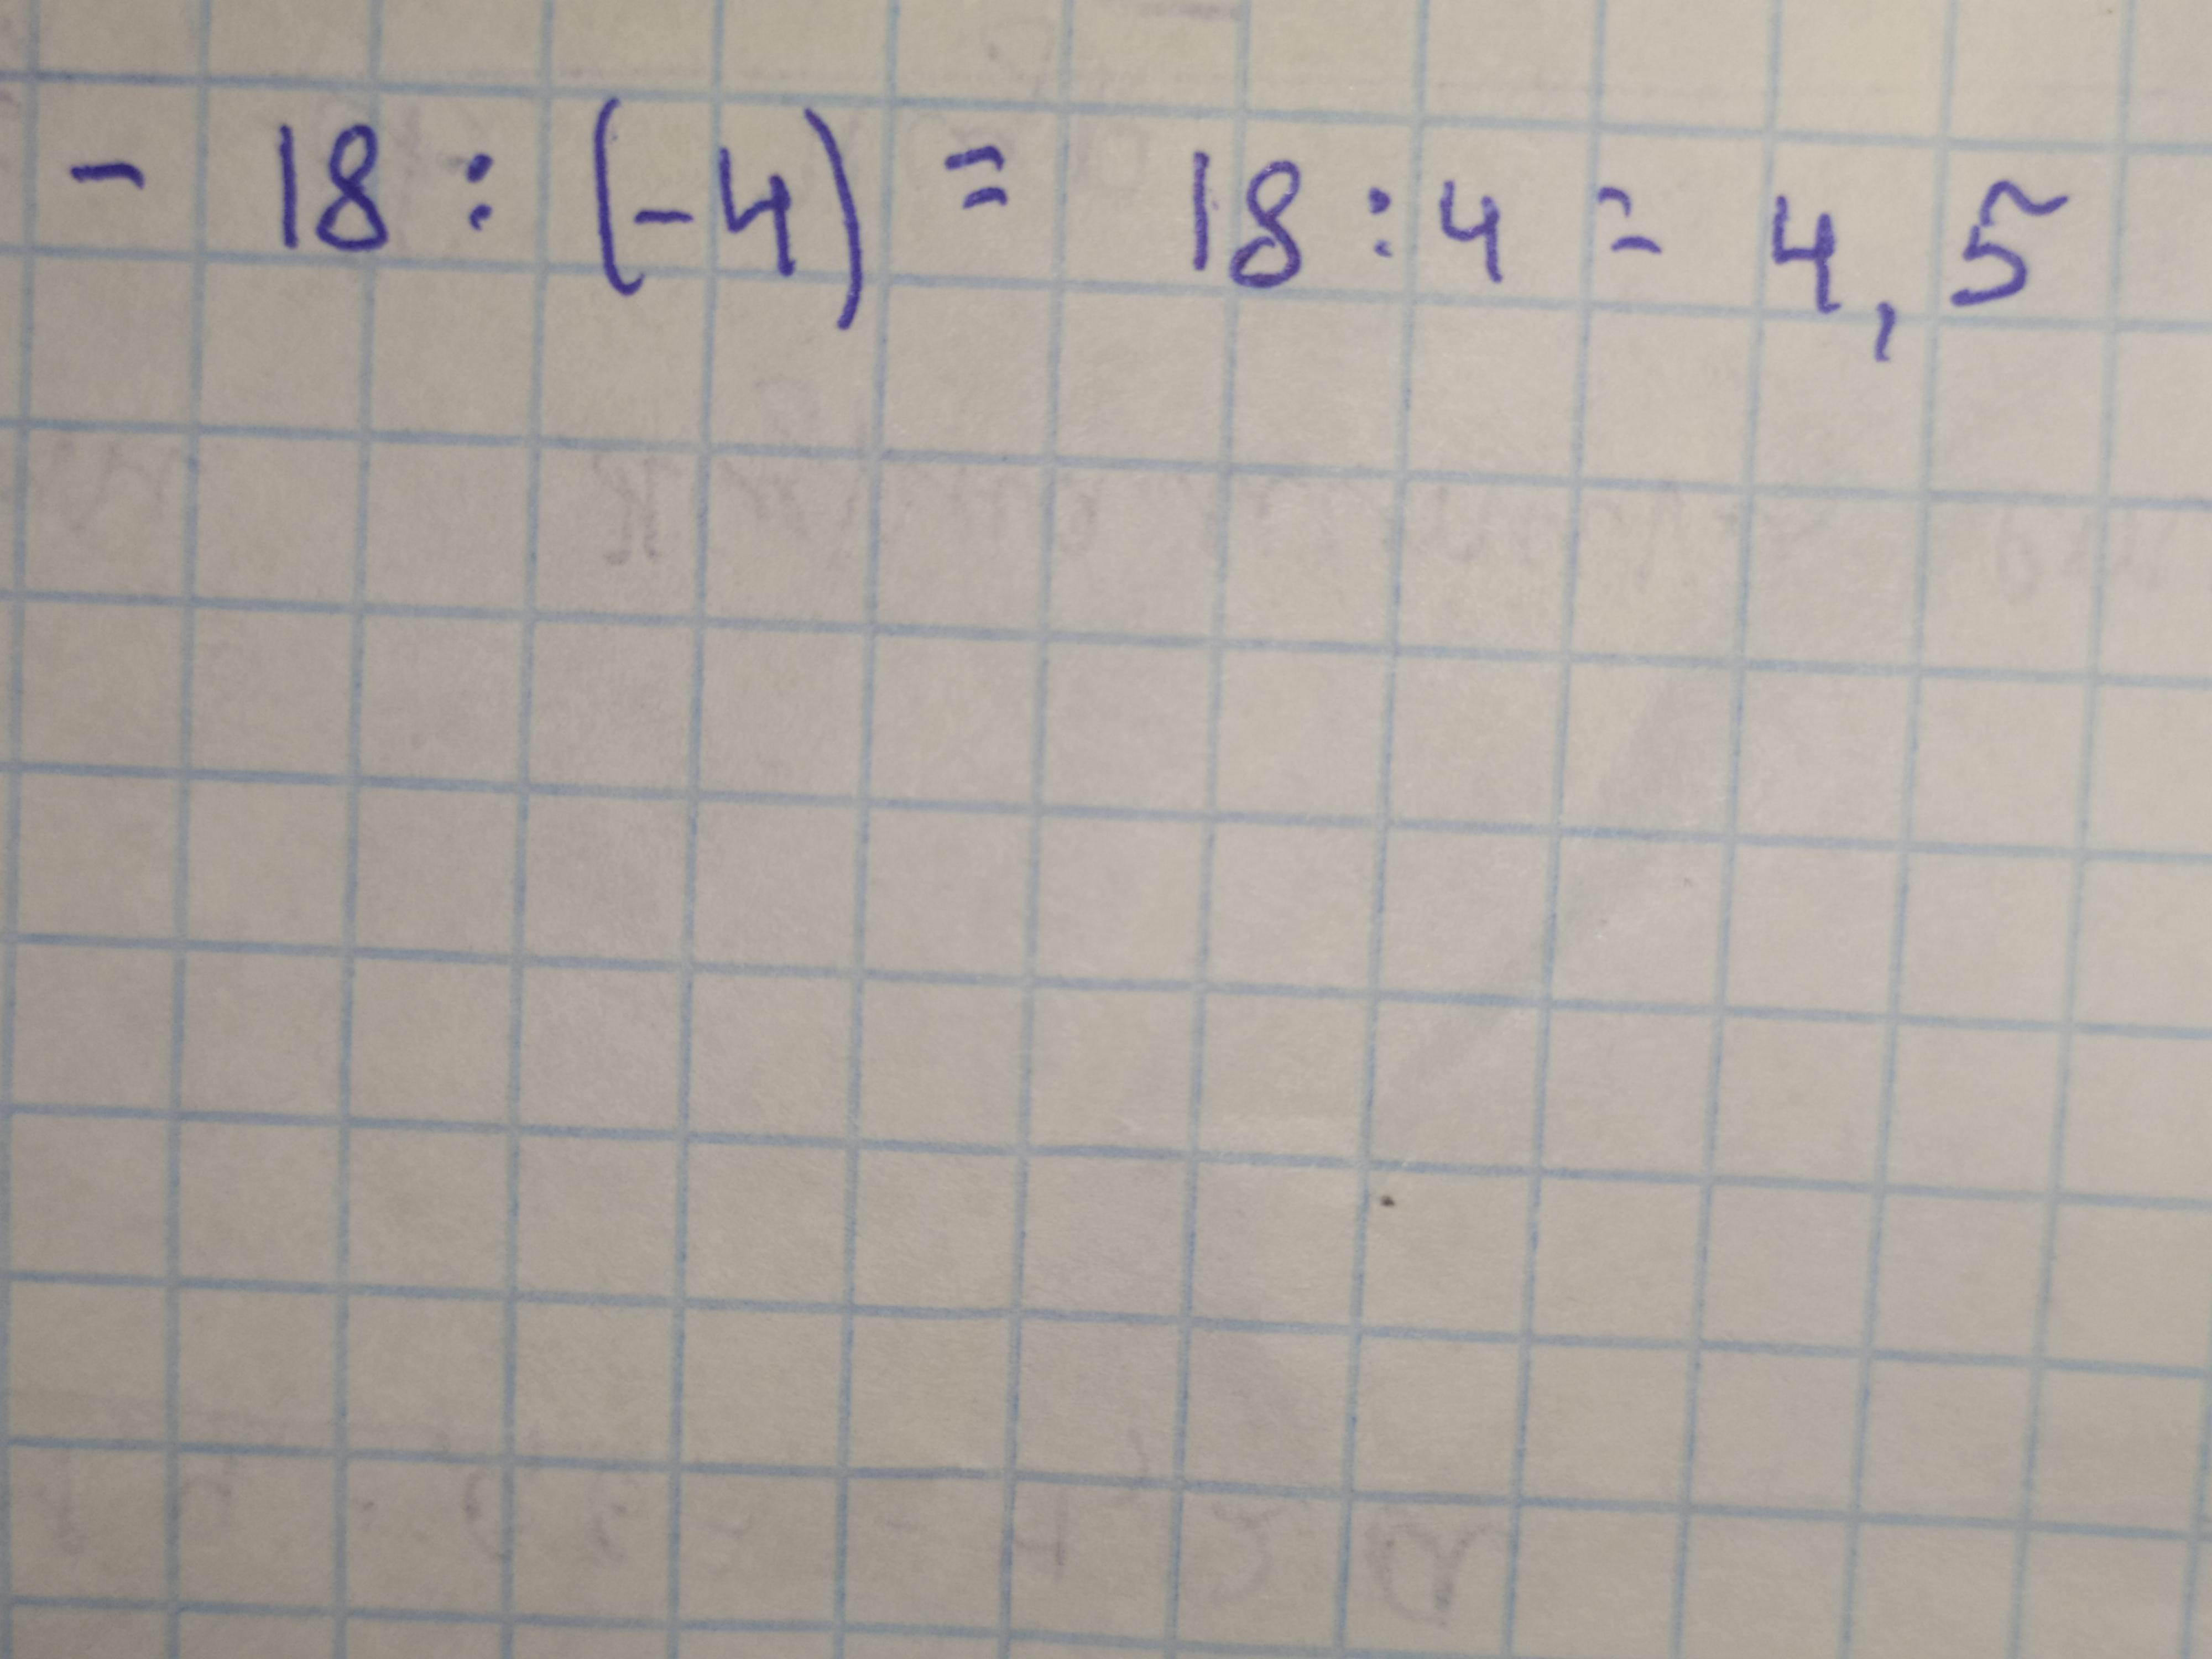 - 18 : (-4) = 18 : 4 = 4,5